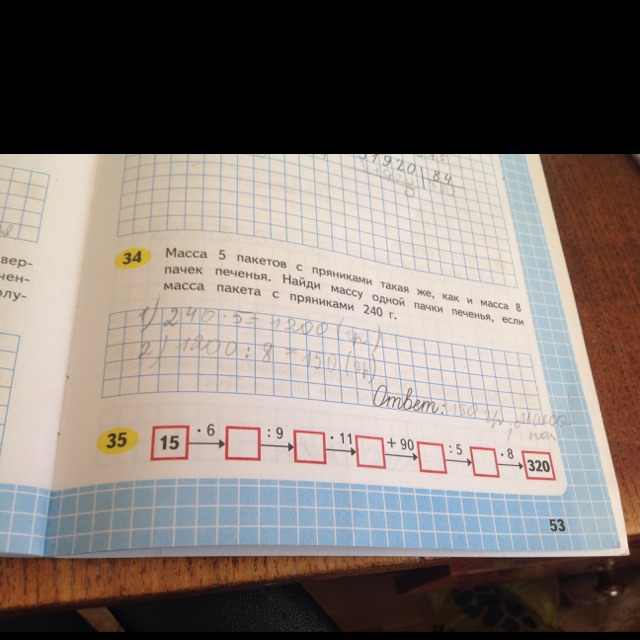 51920 84
вер-
чен-
олу-
34 Масса 5 пакетов с пряниками такая же, как и масса 8
пачек печенья. Найди массу одной пачки печенья, если
масса пакета с пряниками 240 г.
1) 240·5=1200 (г)
2) 1200:8=150 (г)
Ответ: 150 гр,
35 15 ·6 :9 ·11 +90 :5 ·8 320
53